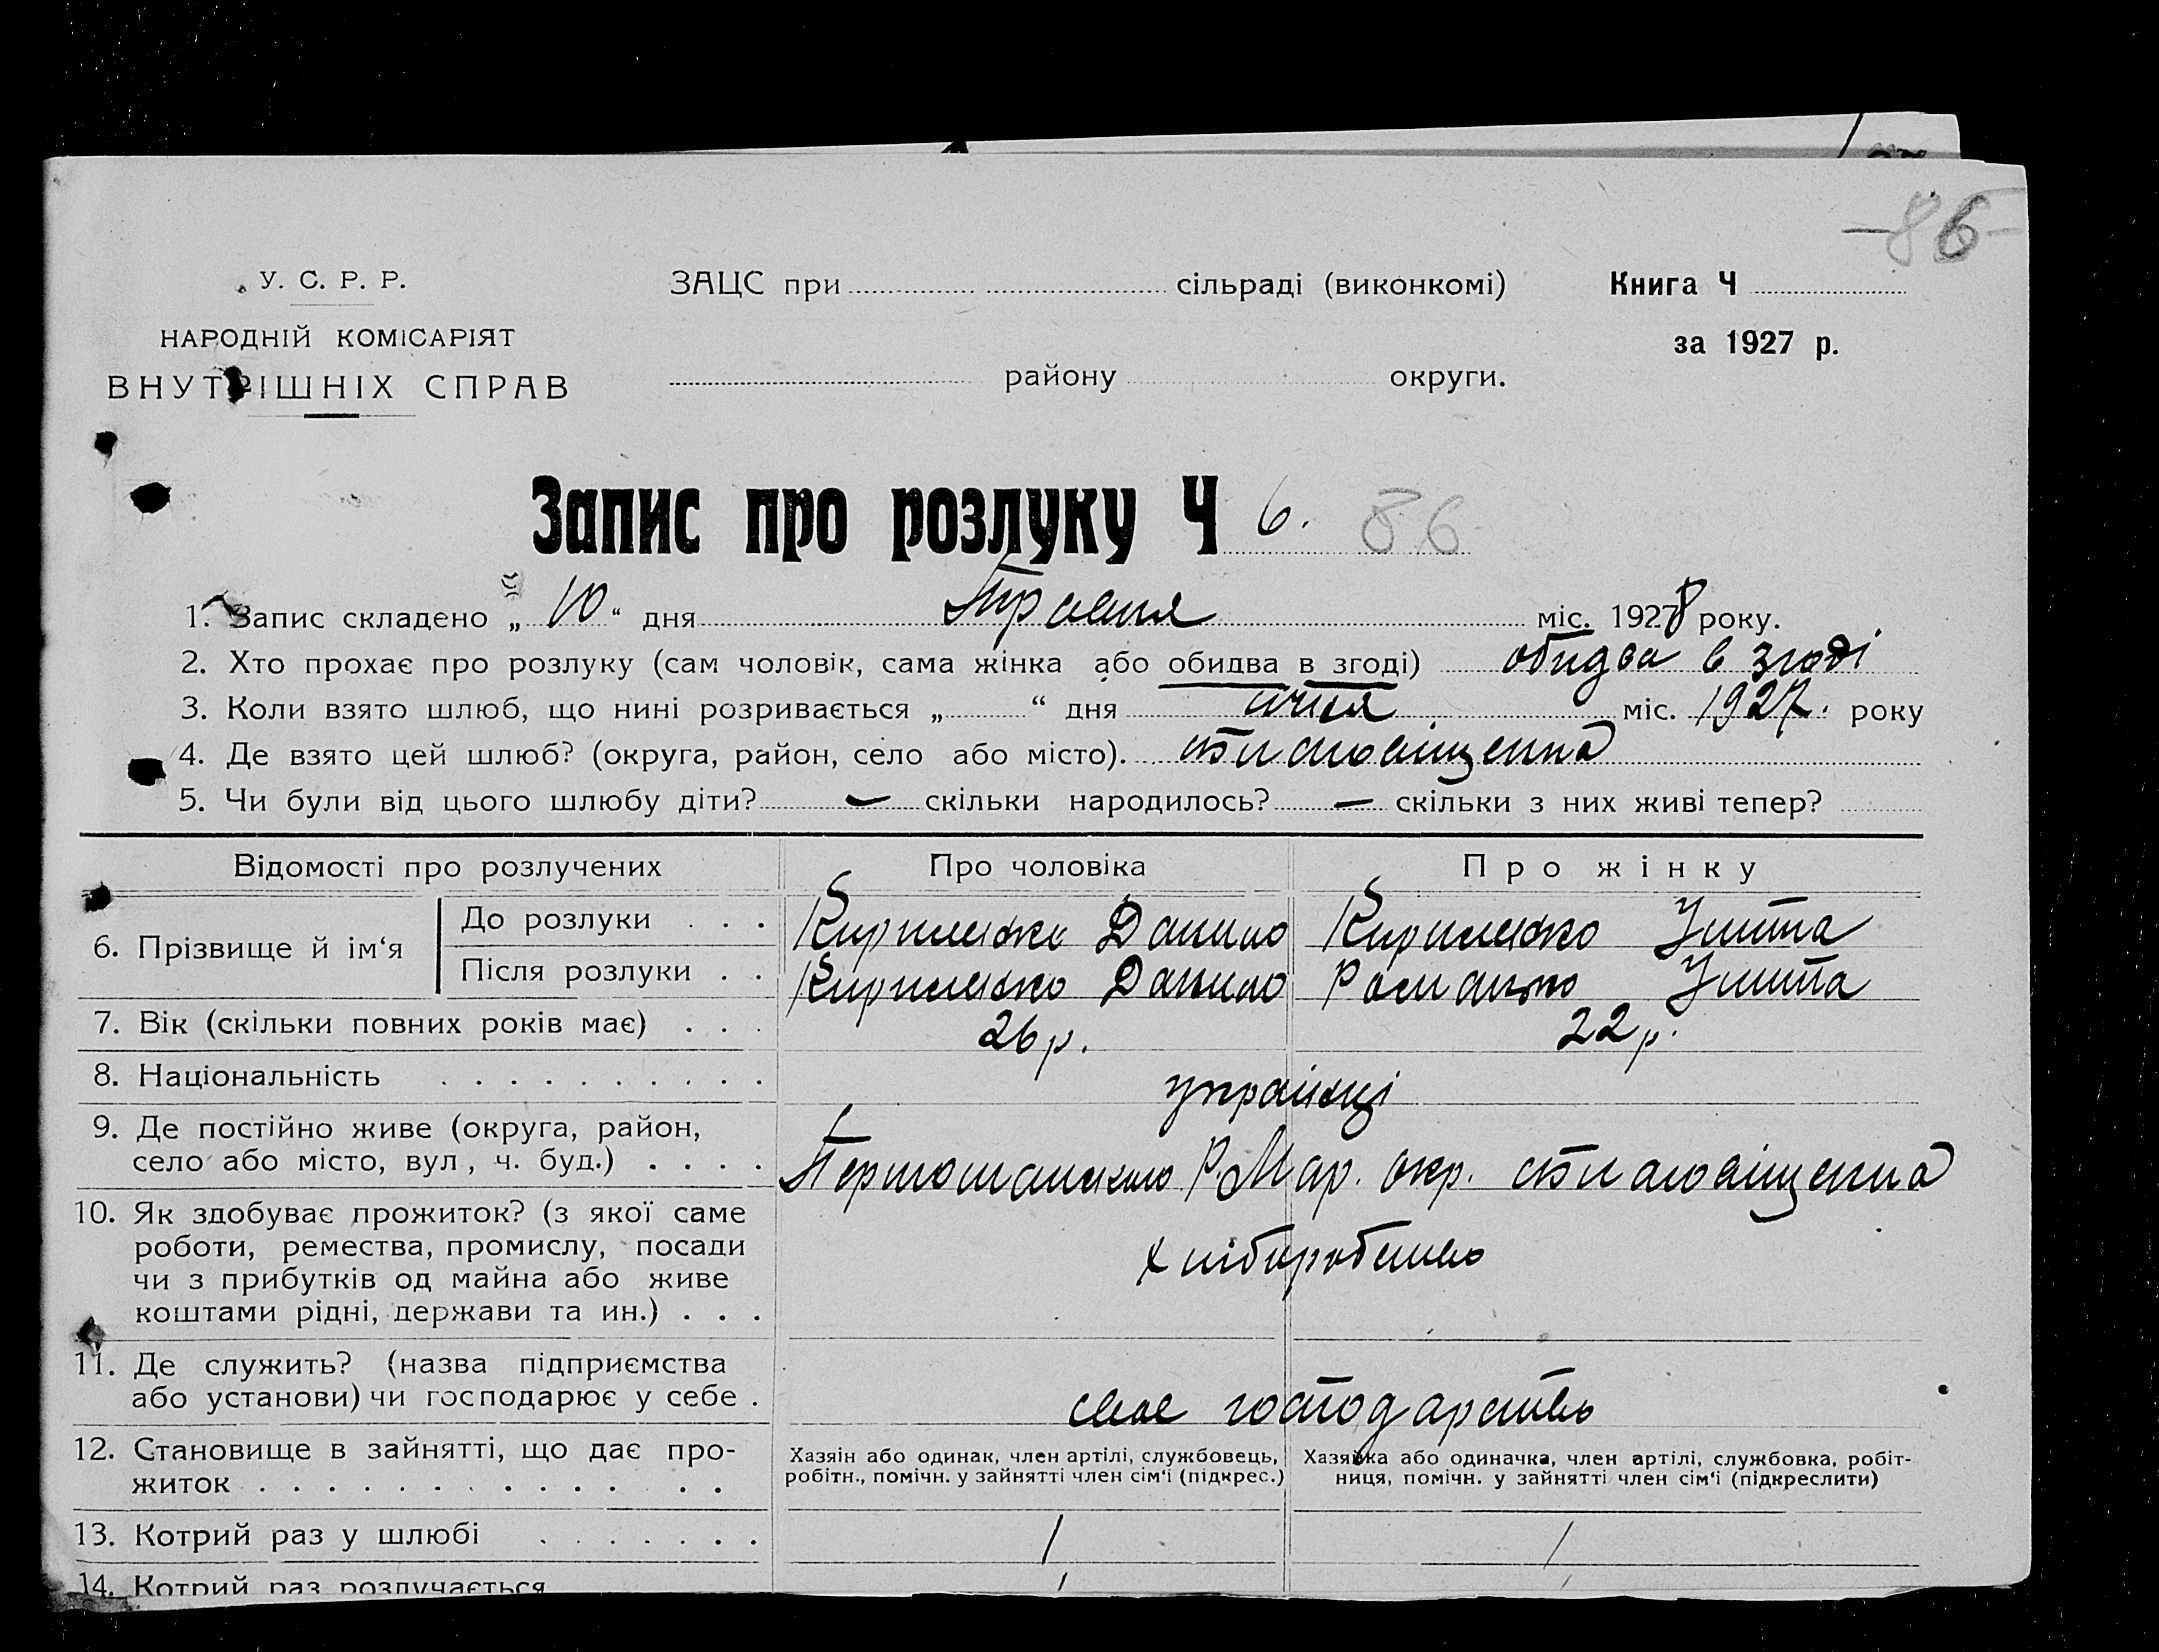 86
У. С. Р. Р.
ЗАЦС при сільраді (виконкомі)
Книга Ч
НАРОДНІЙ КОМІСАРІЯТ
за 1927 р.
ВНУТРІШНІХ СПРАВ
району округи.
Запис про розлуку Ч 6. 86
1. Запис складено „ 10 “ дня Травня міс. 1928 року.
2. Хто прохає про розлуку (сам чоловік, сама жінка або обидва в згоді) обидва в згоді
3. Коли взято шлюб, що нині розривається „ “ дня січня міс. 1927. року
4. Де взято цей шлюб? (округа, район, село або місто).
5. Чи були від цього шлюбу діти? — скільки народилось? — скільки з них живі тепер?
Відомості про розлучених
Про чоловіка
Про жінку
6. Прізвище й ім‘я
До розлуки . . . Кириленко Данило Кириленко Улита
Після розлуки . . Кириленко Данило Романько Улита
7. Вік (скільки повних років має) . . . 26 р. 22 р.
8. Національність . . . . . . . . . . українці
9. Де постійно живе (округа, район,
село або місто, вул, ч. буд.) . . . . Р. Мар. окр.
10. Як здобуває прожиток? (з якої саме
роботи, ремества, промислу, посади
чи з прибутків од майна або живе
коштами рідні, держави та ин.) . . .
хліборобство
11. Де служить? (назва підприємства
або установи) чи господарює у себе .
своє господарство
12. Становище в зайнятті, що дає про-
житок . . . . . . . . . . . . .
Хазяін або одинак, член артілі, службовець,
робітн., помічн. у зайнятті член сім‘і (підкрес.)
Хазяйка або одиначка, член артілі, службовка, робіт-
ниця, помічн. у зайнятті член сім‘і (підкреслити)
13. Котрий раз у шлюбі . . . . . . . 1 1
14. Котрий раз розлучається